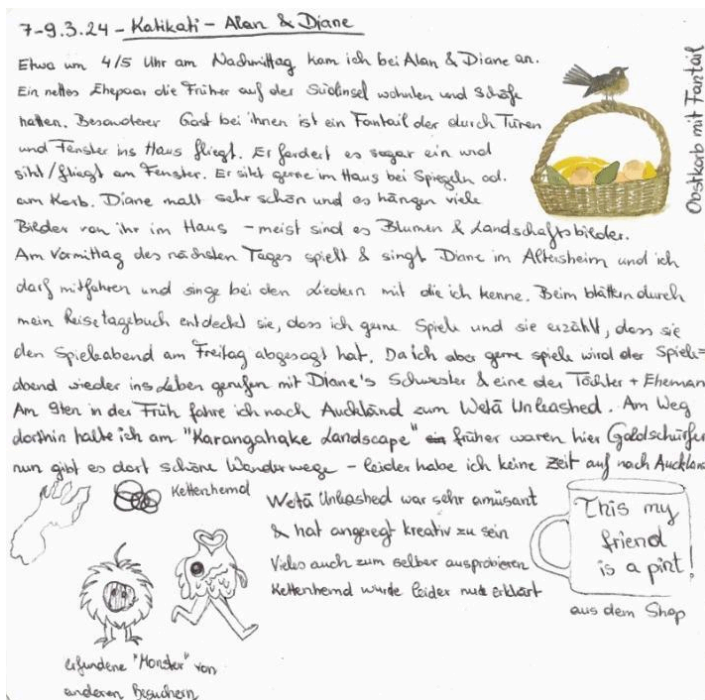 7-9.3.24 - Katikati - Alan & Diane
Etwa um 4/5 Uhr am Nachmittag kam ich bei Alan & Diane an.
Ein nettes Ehepaar die früher auf der Südinsel wohnten und Schafe
hatten. Besonderer Gast bei ihnen ist ein Fantail der durch Türen
und Fenster ins Haus fliegt. Er fordert es sogar ein und
sitzt/fliegt am Fenster. Er sitzt gerne im Haus bei Spiegeln od.
am Korb. Diane malt sehr schön und es hängen viele
Bilder von ihr im Haus - meist sind es Blumen & Landschaftsbilder.
Obstkorb mit Fantail
Am Vormittag des nächsten Tages spielt & singt Diane im Altersheim und ich
darf mitfahren und singe bei den Liedern mit die ich kenne. Beim blättern durch
mein Reisetagebuch entdeckt sie, dass ich gerne Spiele und sie erzählt, dass sie
den Spieleabend am Freitag abgesagt hat. Da ich aber gerne spiele wird der Spiele=
abend wieder ins Leben gerufen mit Diane's Schwester & eine der Töchter + Eheman
Am 9ten in der Früh fahre ich nach Auckland zum Wetā Unleashed. Am Weg
dorthin halte ich am "Karangahake Landscape" früher waren hier Goldschürfer
nun gibt es dort schöne Wanderwege - leider habe ich keine Zeit auf nach Auckland
Kettenhemd
Wetā Unleashed war sehr amüsant
& hat angeregt kreativ zu sein
Vieles auch zum selber ausprobieren
Kettenhemd wurde leider nur erklärt
This my
friend
is a pint!
aus dem Shop
erfundene "Monster" von
anderen Besuchern